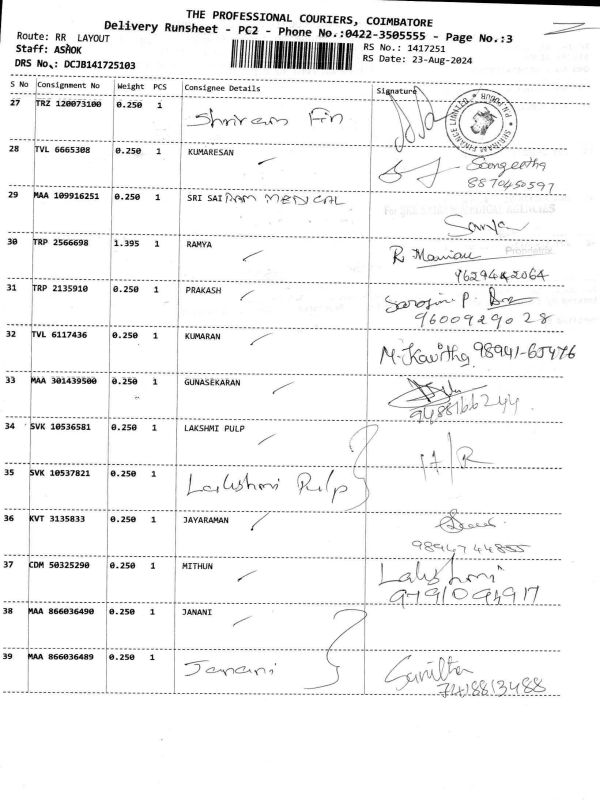 THE PROFESSIONAL COURIERS, COIMBATORE
Delivery Runsheet - PC2 - Phone No.:0422-3505555 - Page No.:3
Route: RR LAYOUT
RS No.: 1417251
Staff: ASHOK
RS Date: 23-Aug-2024
DRS No.: DCJB141725103
S No Consignment No Weight PCS Consignee Details Signature
27 TRZ 120073100 0.250 1 Shriram Fin
28 TVL 6665308 0.250 1 KUMARESAN Sangeetha
8870450597
29 MAA 109916251 0.250 1 SRI SAI RAM MEDICAL
30 TRP 2566698 1.395 1 RAMYA
31 TRP 2135910 0.250 1 PRAKASH
9600929028
32 TVL 6117436 0.250 1 KUMARAN M. Kavitha 98941-65476
33 MAA 301439500 0.250 1 GUNASEKARAN
9488166244
34 SVK 10536581 0.250 1 LAKSHMI PULP
35 SVK 10537821 0.250 1 Lakshmi Pulp
36 KVT 3135833 0.250 1 JAYARAMAN
9894744855
37 CDM 50325290 0.250 1 MITHUN Lakshmi
9791094917
38 MAA 866036490 0.250 1 JANANI
39 MAA 866036489 0.250 1 Janani
7418813488